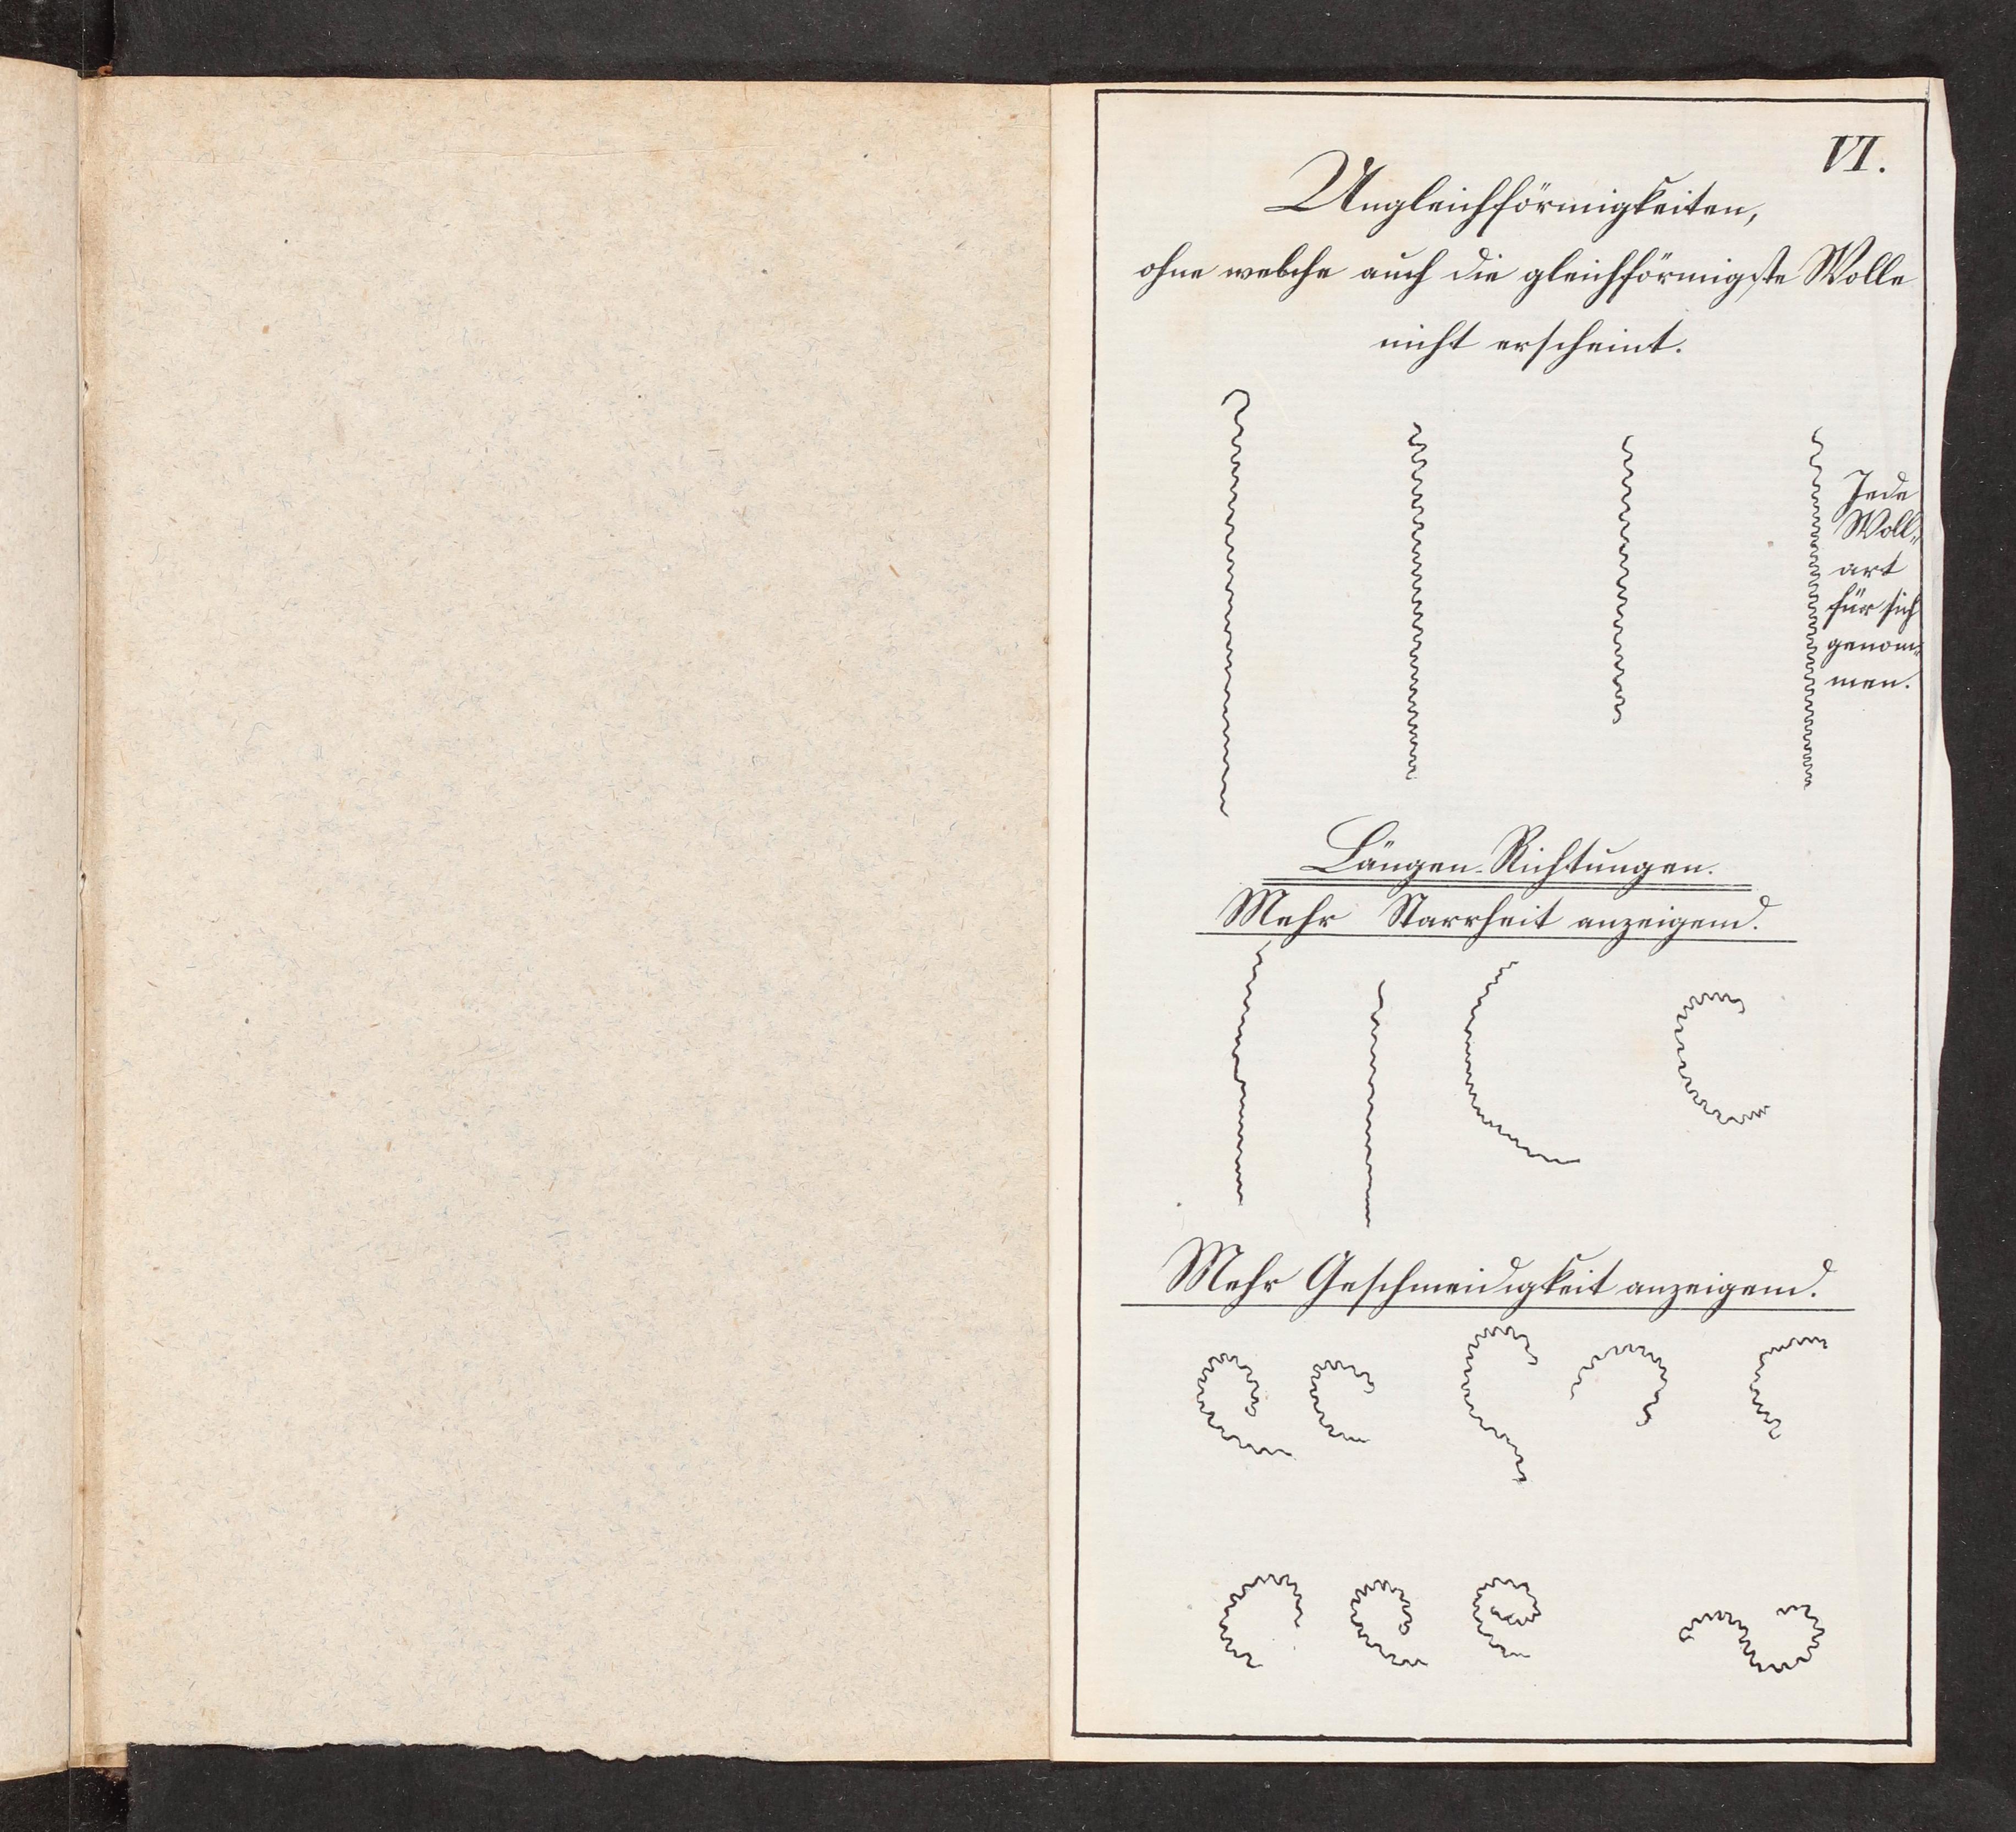 VI.
Ungleichförmigkeiten,
ohne welche auch die gleichförmigste Wolle
nicht erscheint.
Jede
Woll-
art
für sich
genom-
men.
Längen-Richtungen.
Mehr Starrheit anzeigend.
Mehr Geschmeidigkeit anzeigend.